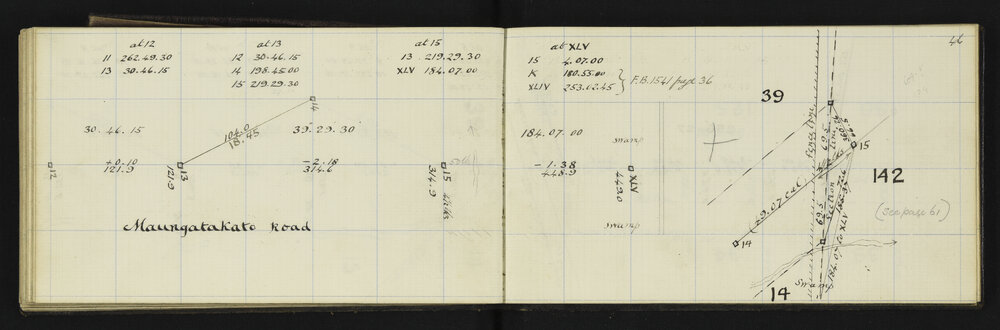 at 12
11 262.49.30
13 30.46.15
at 13
12 30.46.15
14 198.45.00
15 219.29.30
at 15
13 219.29.30
XLV 184.07.00
30.46.15
104.0
18.45
14
39.29.30
+0.10
121.9
-2.18
314.6
12
121.9
13
314.9
15
Maungatakato Road
46
at XLV
15 4.07.00
K 180.55.00
XLIV 253.02.45
F.B. 1541 page 36
39
184.07.00
swamp
-1.38
448.9
449.0
XLV
swamp
15
142
(see page 61)
49.07 cal
14
Section
Line
69.5
62.5
184.07 to XLV
Swamp
14